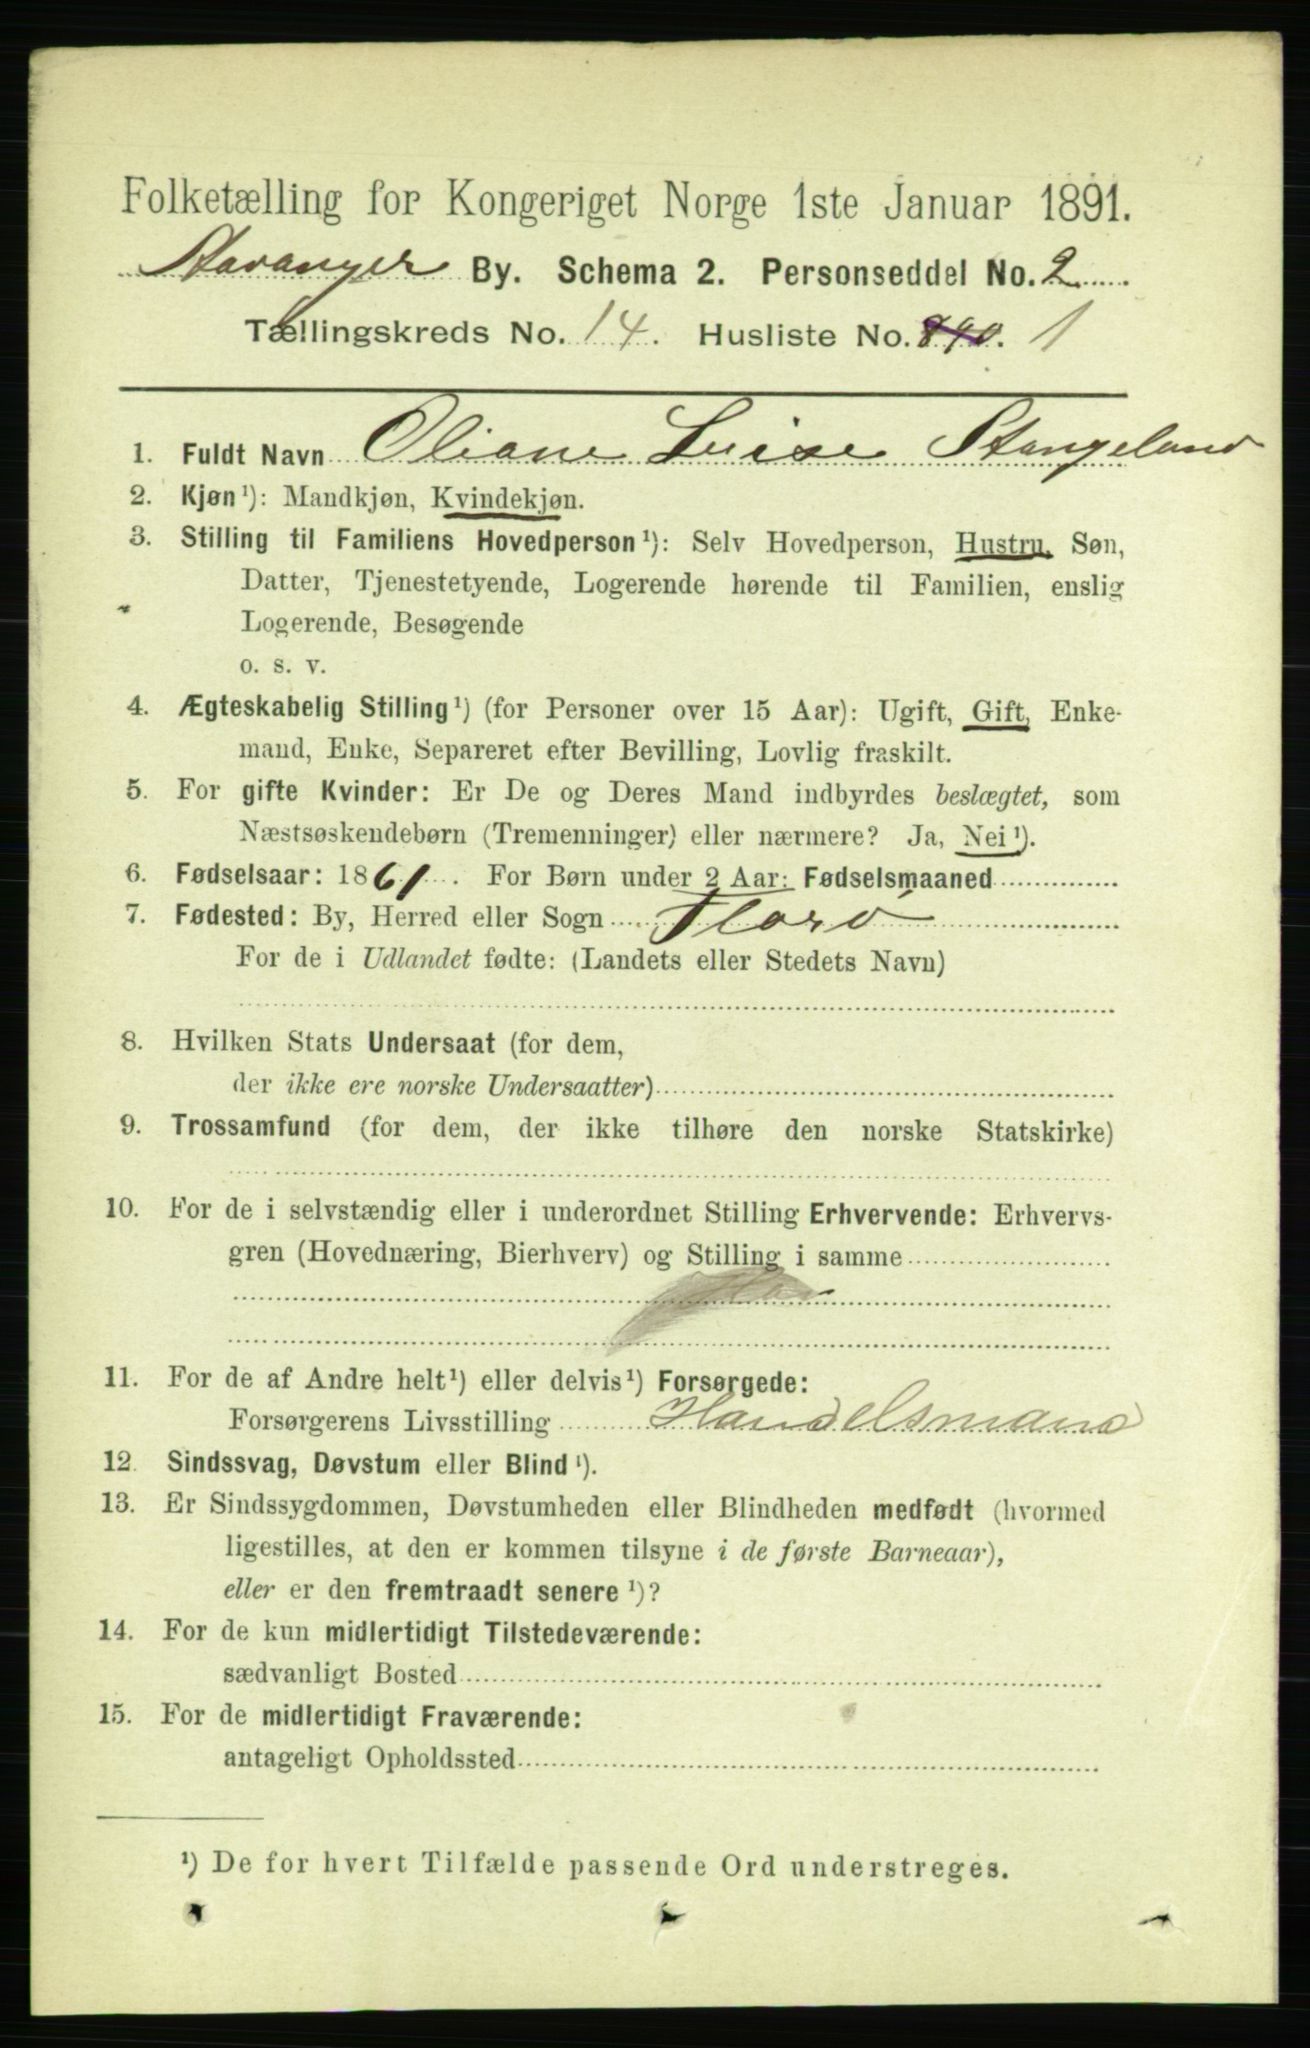 Folketælling for Kongeriget Norge 1ste Januar 1891.
Stavanger By. Schema 2. Personseddel No. 2
Tællingskreds No. 14. Husliste No. 890. 1
1. Fuldt Navn Oliane Luise Stangeland
2. Kjøn¹): Mandkjøn, Kvindekjøn.
3. Stilling til Familiens Hovedperson¹): Selv Hovedperson, Hustru, Søn,
Datter, Tjenestetyende, Logerende hørende til Familien, enslig
Logerende, Besøgende
o. s. v.
4. Ægteskabelig Stilling¹) (for Personer over 15 Aar): Ugift, Gift, Enke-
mand, Enke, Separeret efter Bevilling, Lovlig fraskilt.
5. For gifte Kvinder: Er De og Deres Mand indbyrdes beslægtet, som
Næstsøskendebørn (Tremenninger) eller nærmere? Ja, Nei¹).
6. Fødselsaar: 1861. For Børn under 2 Aar: Fødselsmaaned
7. Fødested: By, Herred eller Sogn Florø
For de i Udlandet fødte: (Landets eller Stedets Navn)
8. Hvilken Stats Undersaat (for dem,
der ikke ere norske Undersaatter)
9. Trossamfund (for dem, der ikke tilhøre den norske Statskirke)
10. For de i selvstændig eller i underordnet Stilling Erhvervende: Erhvervs-
gren (Hovednæring, Bierhverv) og Stilling i samme
11. For de af Andre helt¹) eller delvis¹) Forsørgede:
Forsørgerens Livsstilling Handelsmand
12. Sindssvag, Døvstum eller Blind¹).
13. Er Sindssygdommen, Døvstumheden eller Blindheden medfødt (hvormed
ligestilles, at den er kommen tilsyne i de første Barneaar),
eller er den fremtraadt senere¹)?
14. For de kun midlertidigt Tilstedeværende:
sædvanligt Bosted
15. For de midlertidigt Fraværende:
antageligt Opholdssted
¹) De for hvert Tilfælde passende Ord understreges.